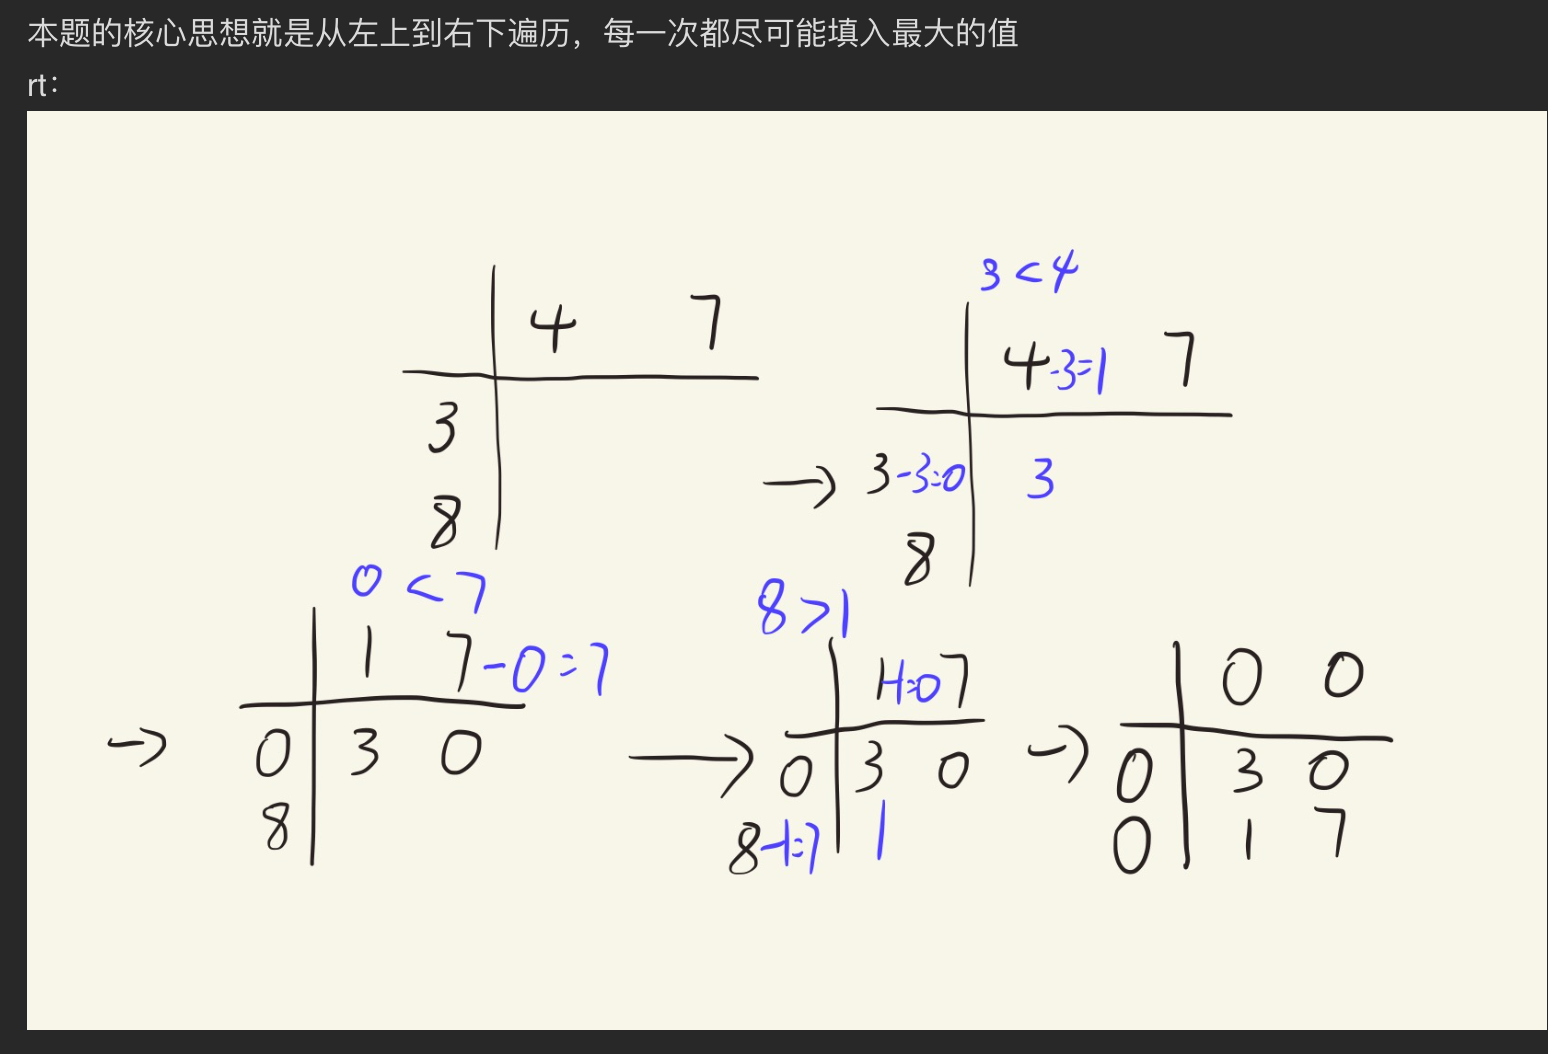 本题的核心思想就是从左上到右下遍历，每一次都尽可能填入最大的值
rt：
4 7
3
8
3 < 4
4 -3=1 7
3 -3=0 3
8
0 < 7
1 7 -0=7
0 3 0
8
8 > 1
1 -1=0 7
0 3 0
8 -1=7 1
0 0
0 3 0
0 1 7